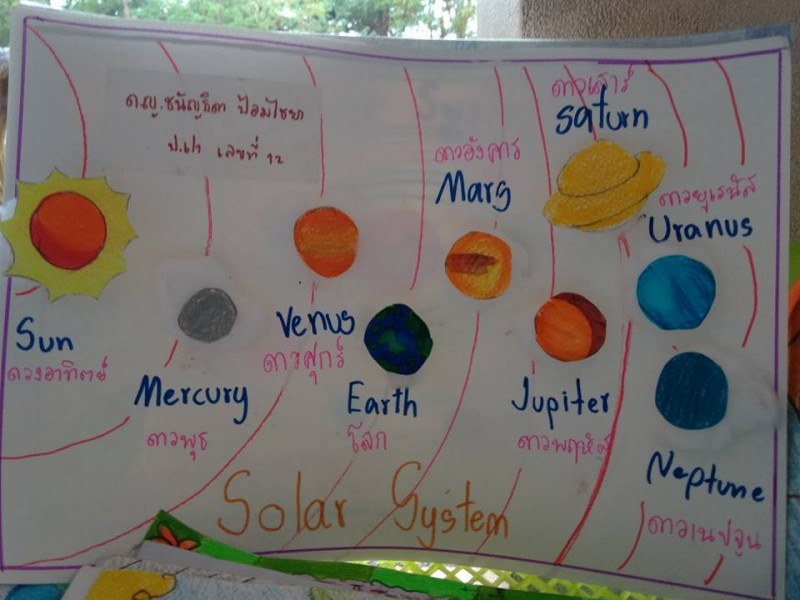 ด.ญ.ชนัญธิดา ป้อมไชยา
ป.๔/๑ เลขที่ ๑๒
Sun
ดวงอาทิตย์
Mercury
ดาวพุธ
Venus
ดาวศุกร์
Earth
โลก
ดาวอังคาร
Mars
Jupiter
ดาวพฤหัส
ดาวเสาร์
Saturn
ดาวยูเรนัส
Uranus
Neptune
ดาวเนปจูน
Solar System